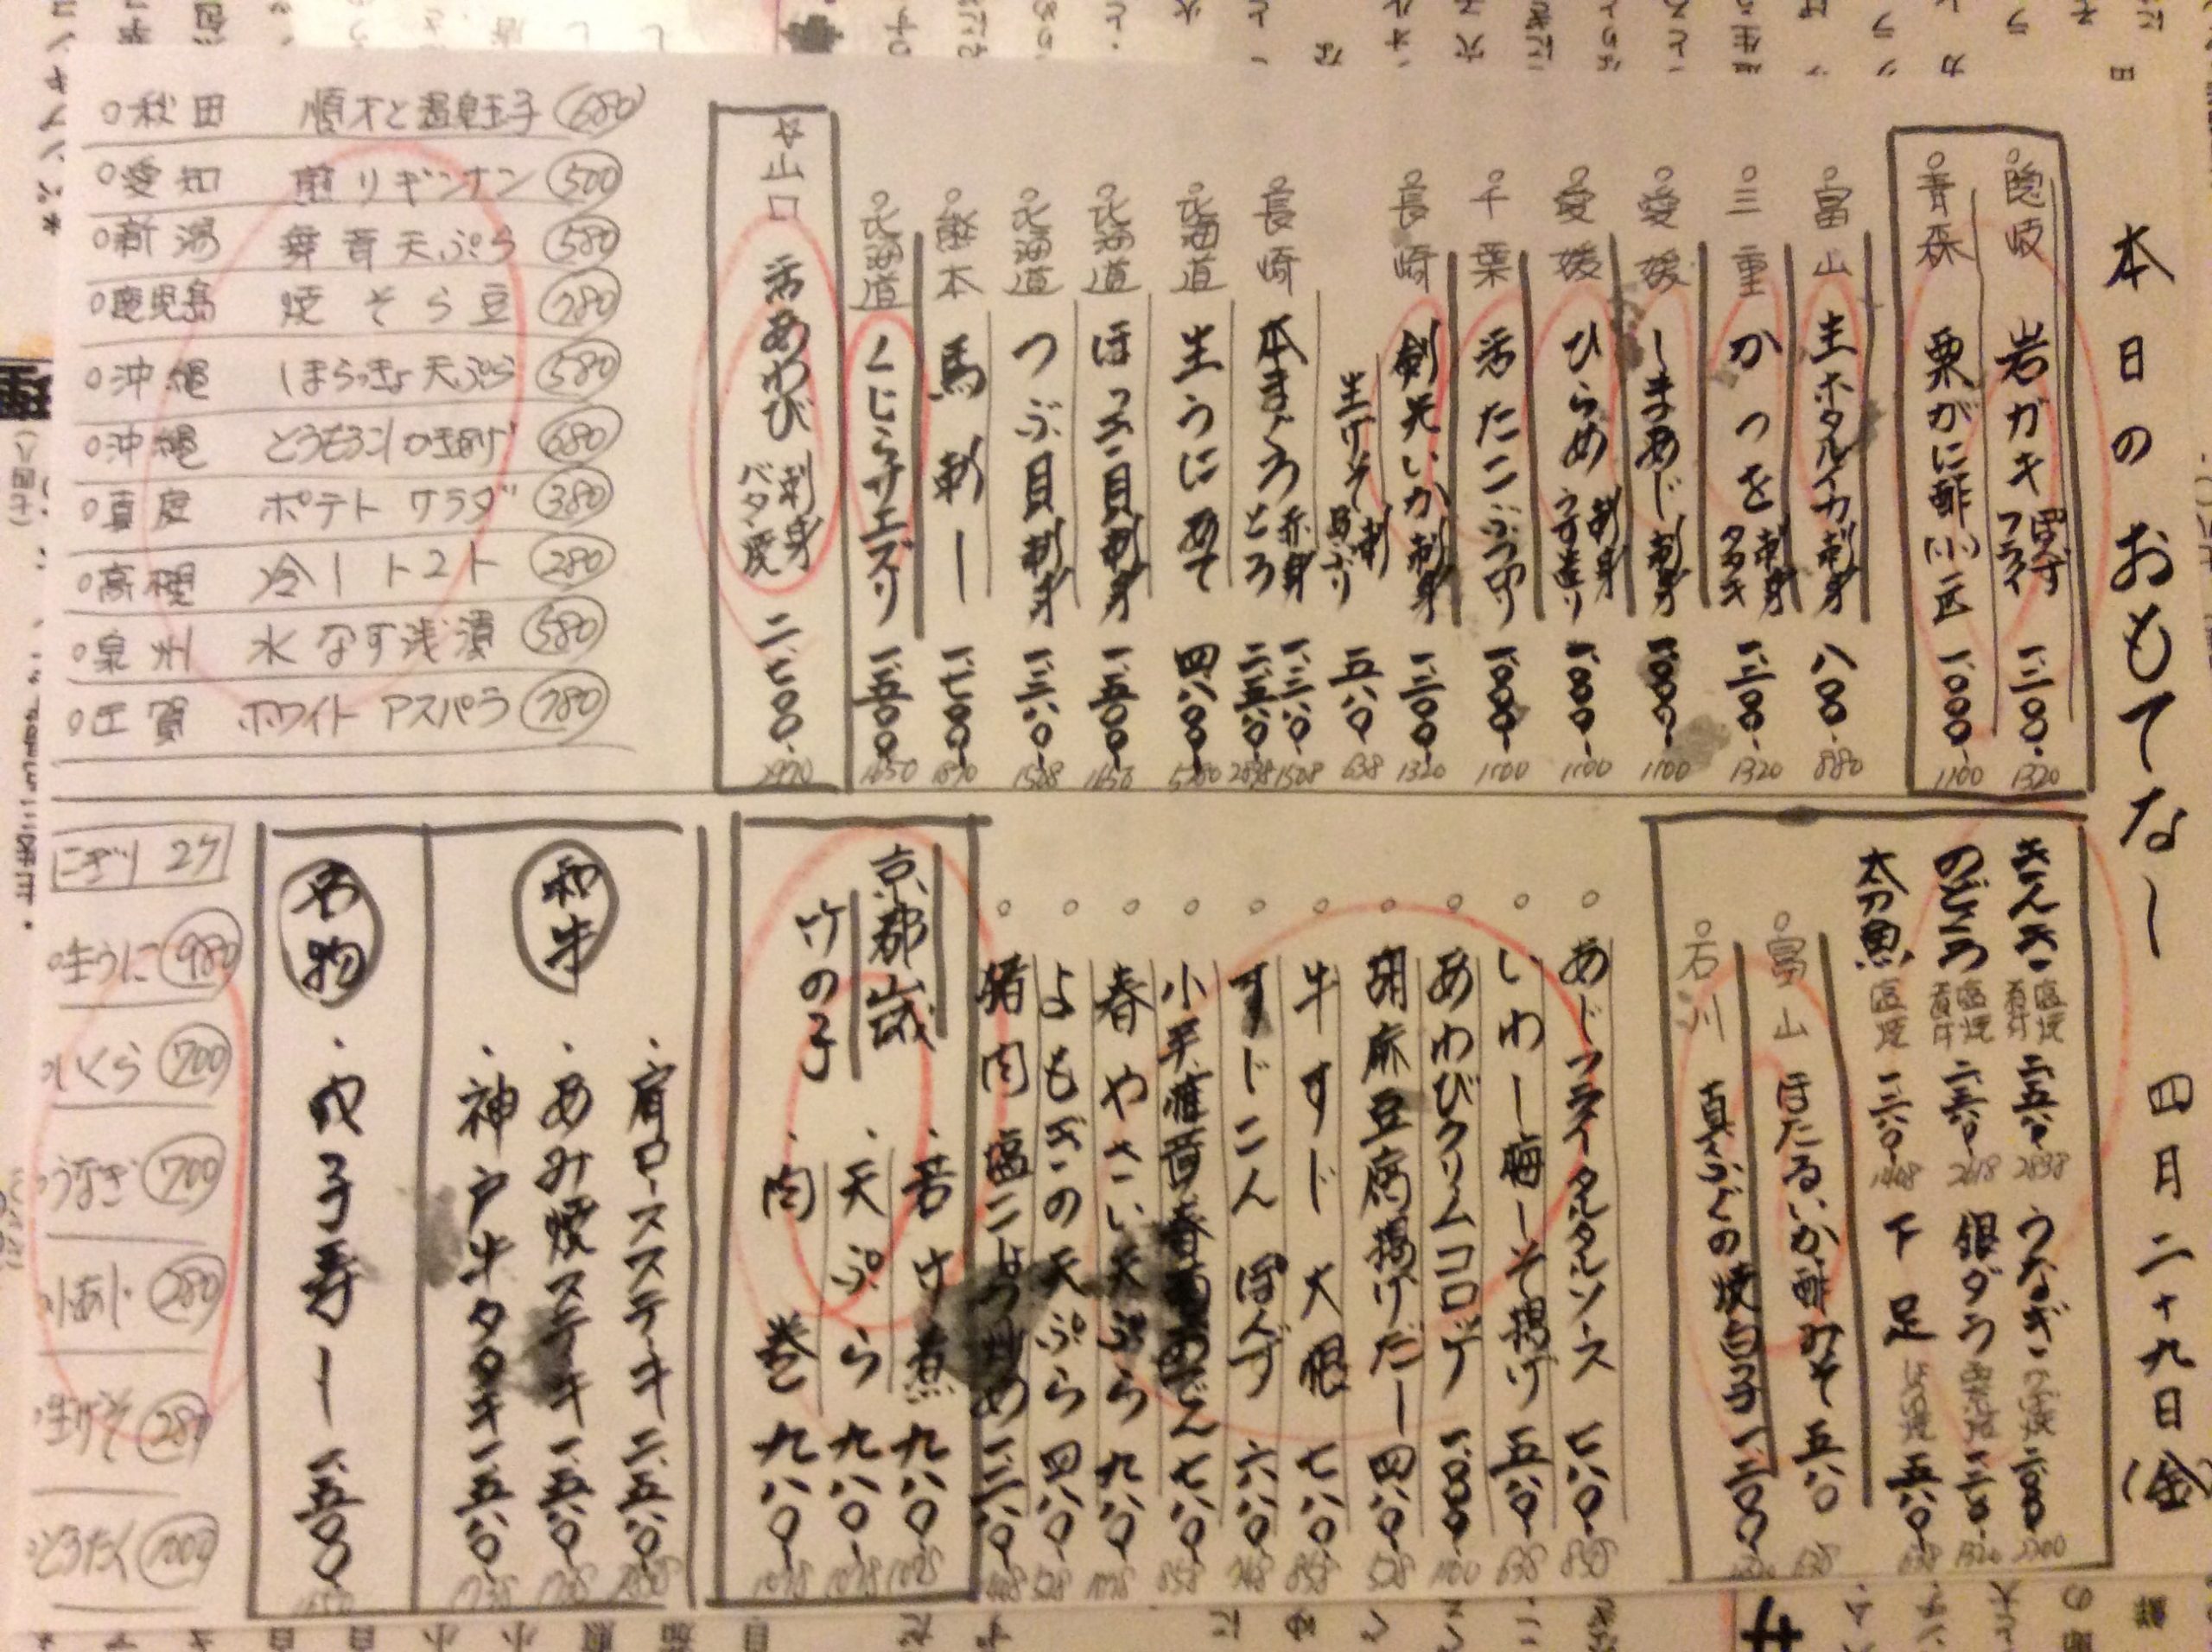 本日のおもてなし 四月二十九日(金)
隠岐 岩ガキ ぽんず フライ 一、二〇〇 1320
青森 栗がに酢(小)一匹 一、〇〇〇 1100
富山 生ホタルイカ刺身 八〇〇 880
三重 かつを 刺身 タタキ 一、二〇〇 1320
愛媛 しまあじ刺身 一、〇〇〇 1100
愛媛 ひらめ 刺身 うす造り 一、〇〇〇 1100
千葉 活たこぶつ切り 一、〇〇〇 1100
長崎 剣先いか刺身 一、二〇〇 1320
生げそ 刺 五八〇 638
長崎 本まぐろ 赤身 とろ 一、三八〇 二、五八〇 1518 2838
北海道 生うに あて 四、八〇〇 5280
北海道 ほっき貝刺身 一、五〇〇 1650
北海道 つぶ貝刺身 一、三八〇 1518
熊本 馬刺し 一、七〇〇 1870
北海道 くじらサエズリ 一、五〇〇 1650
☆山口 活あわび 刺身 バター焼 二、七〇〇 2970
秋田 順才と温泉玉子 680
愛知 煎りギンナン 500
新潟 舞茸天ぷら 580
鹿児島 焼そら豆 280
沖縄 しまらっきょ天ぷら 580
沖縄 とうもろこしかきあげ 680
真庭 ポテトサラダ 380
高槻 冷しトマト 280
泉州 水なす浅漬 580
佐賀 ホワイトアスパラ 780
きんき 塩焼 煮付 二、五八〇 2838
のどぐろ 塩焼 煮付 二、三八〇 2618
太刀魚 塩焼 一、二八〇 1408
うなぎ 二、〇〇〇 2200
銀ダラ 西京焼 一、二〇〇 1320
下足 しょうゆ焼 五八〇 638
富山 ほたるいか酢みそ 五八〇 638
石川 真ふぐの焼白子 一、二〇〇 1320
あじフライタルタルソース 七八〇 858
いわし梅しそ揚げ 五八〇 638
あわびクリームコロッケ 一、〇〇〇 1100
胡麻豆腐揚げだし 四八〇 528
牛すじ大根 七八〇 858
すじこんぽんず 六八〇 748
七八〇 858
春やさい天ぷら 九八〇 1078
よもぎの天ぷら 四八〇 528
猪肉塩こしょう炒め 一、二八〇 1408
京都山城 竹の子
・若竹煮 九八〇 1078
・天ぷら 九八〇 1078
・肉巻 九八〇 1078
和牛
・肩ロースステーキ 二、五八〇 2838
・あみ焼ステーキ 一、五八〇 1738
・神戸牛タタキ 一、五八〇 1738
名物
・穴子寿し 一、五〇〇 1650
にぎり 2ケ
生うに 980
いくら 700
うなぎ 700
小あじ 280
生げそ 280
とろたく 1000